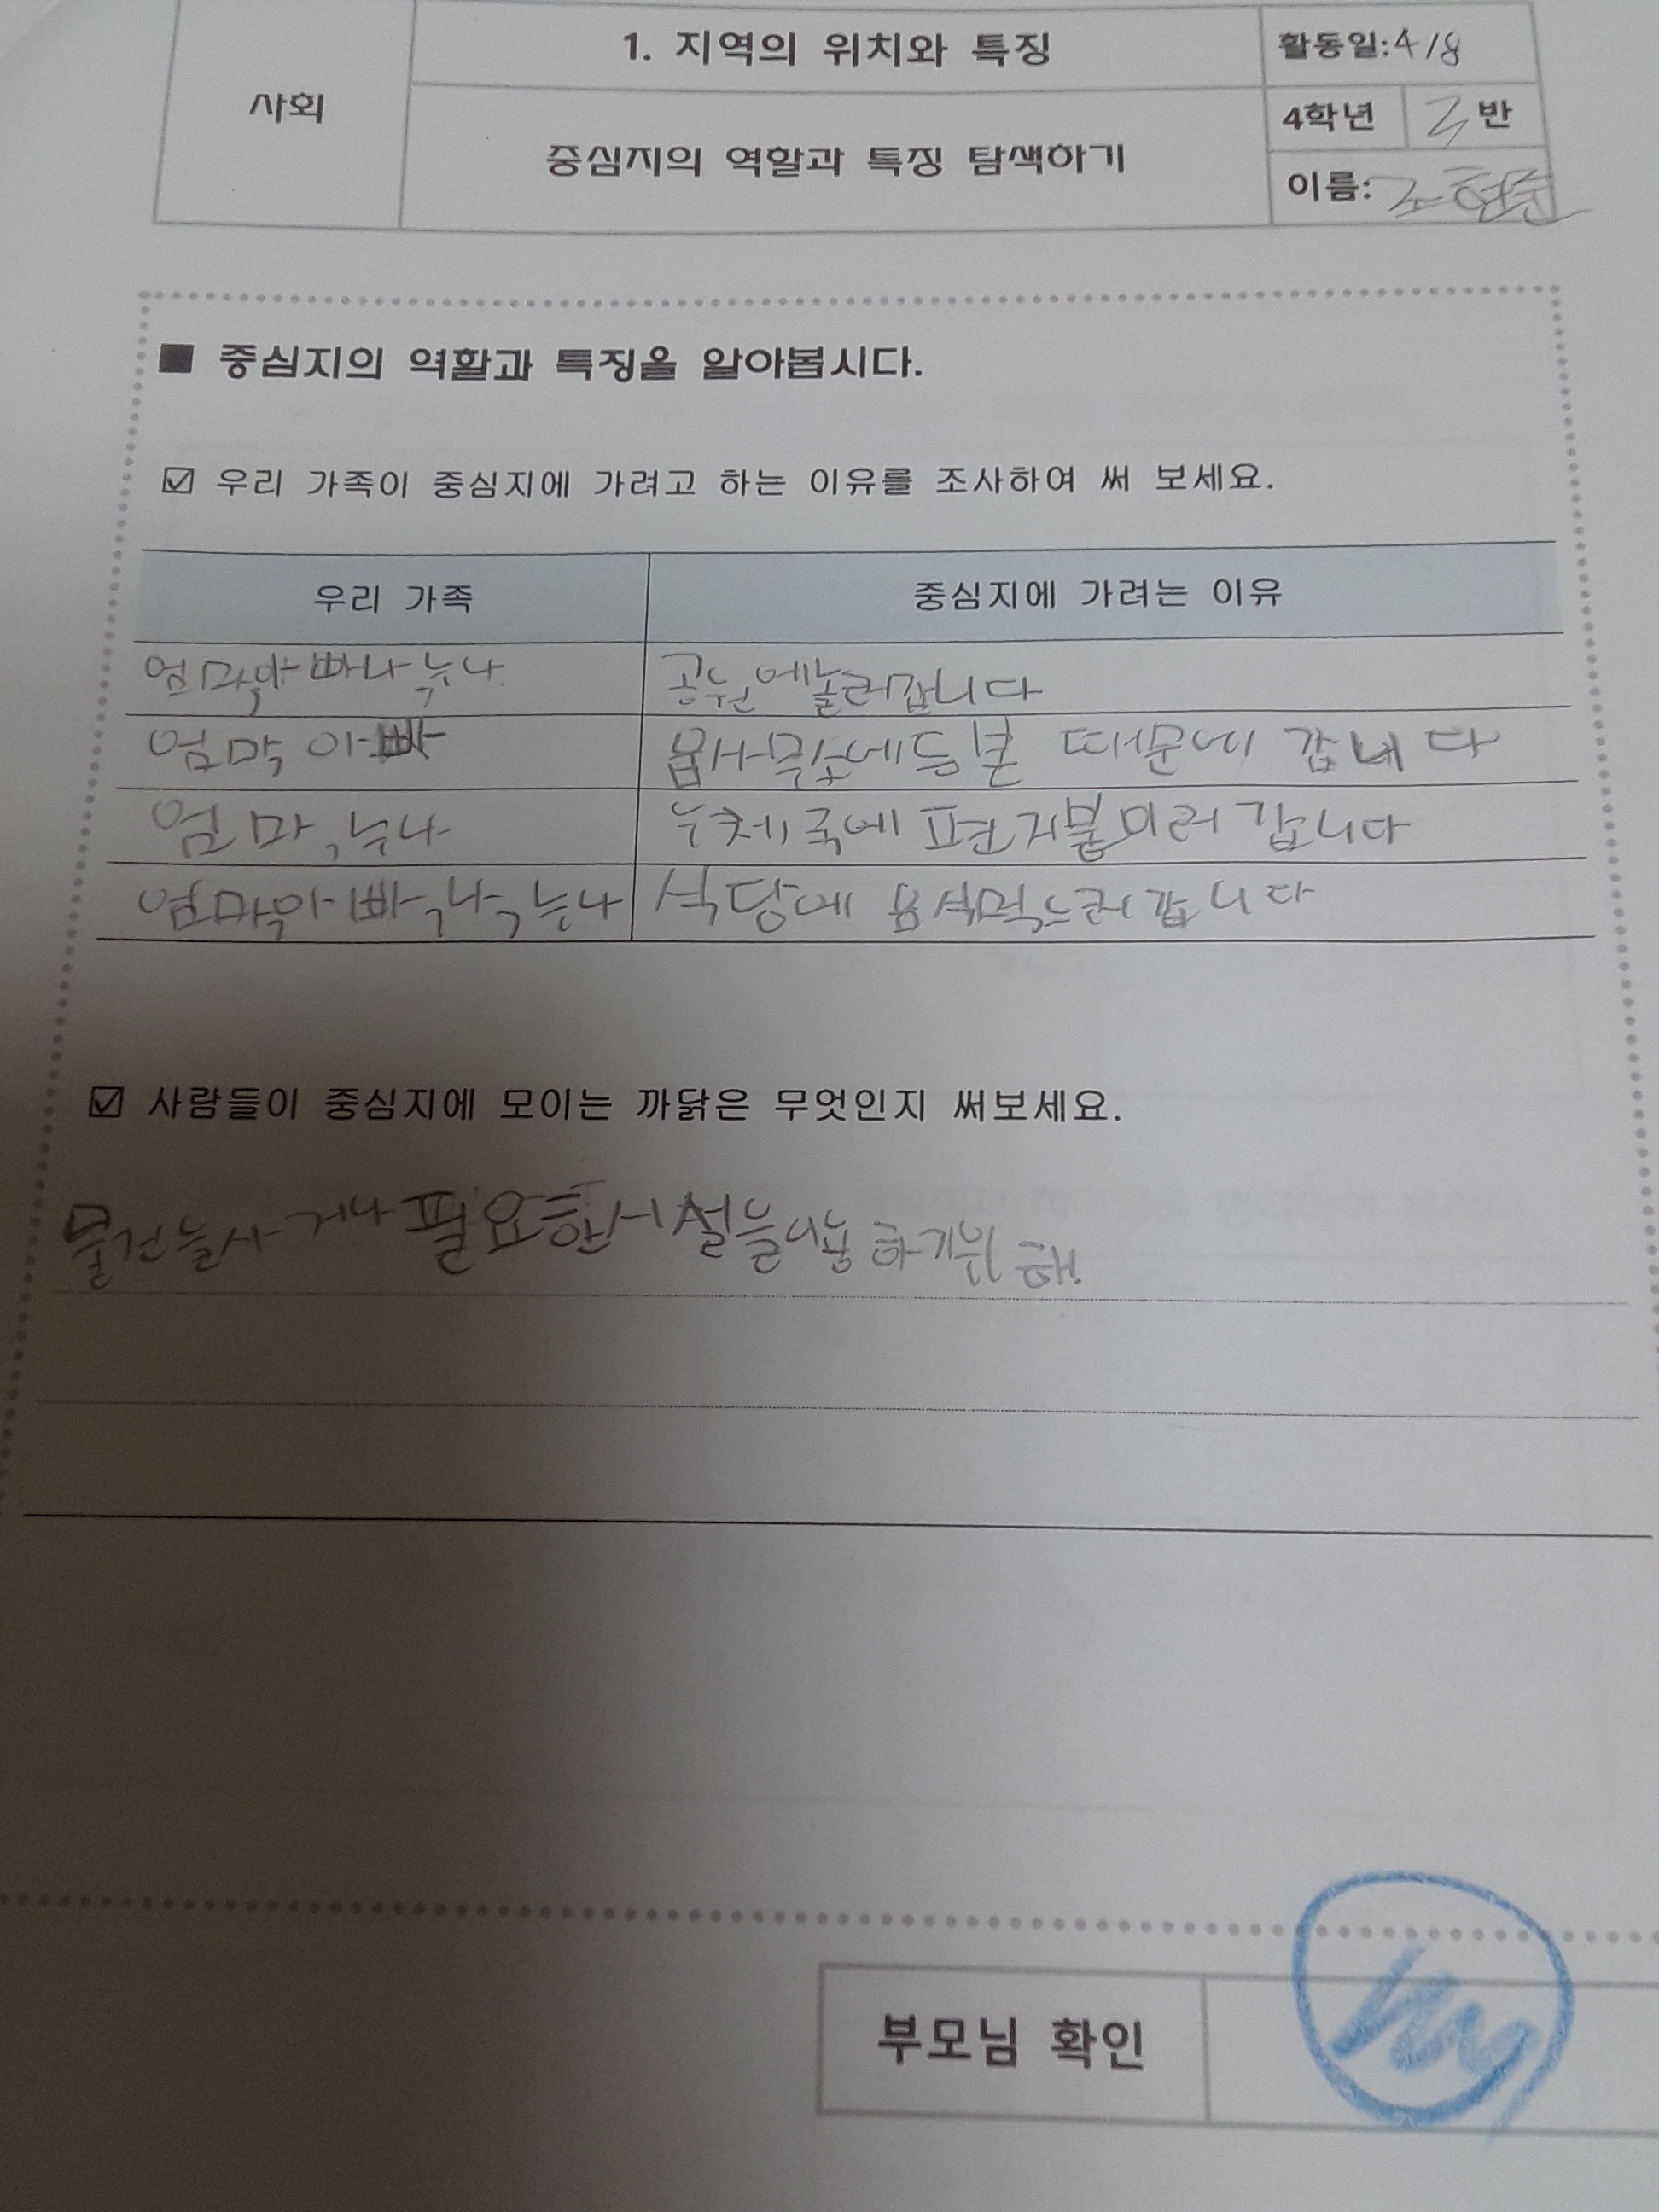 사회
1. 지역의 위치와 특징
중심지의 역할과 특징 탐색하기
활동일:4/8
4학년 3반
이름:
■ 중심지의 역할과 특징을 알아봅시다.
☑ 우리 가족이 중심지에 가려고 하는 이유를 조사하여 써 보세요.
우리 가족 중심지에 가려는 이유
엄마,아빠,나,누나 공원에놀러갑니다
엄마, 아빠 때문에 갑니다
엄마,누나 우체국에 편지붙이러 갑니다
엄마,아빠,나,누나 식당에 음식먹으러 갑니다
☑ 사람들이 중심지에 모이는 까닭은 무엇인지 써보세요.
물건늘사거나 필요한시설을 하기위해
부모님 확인